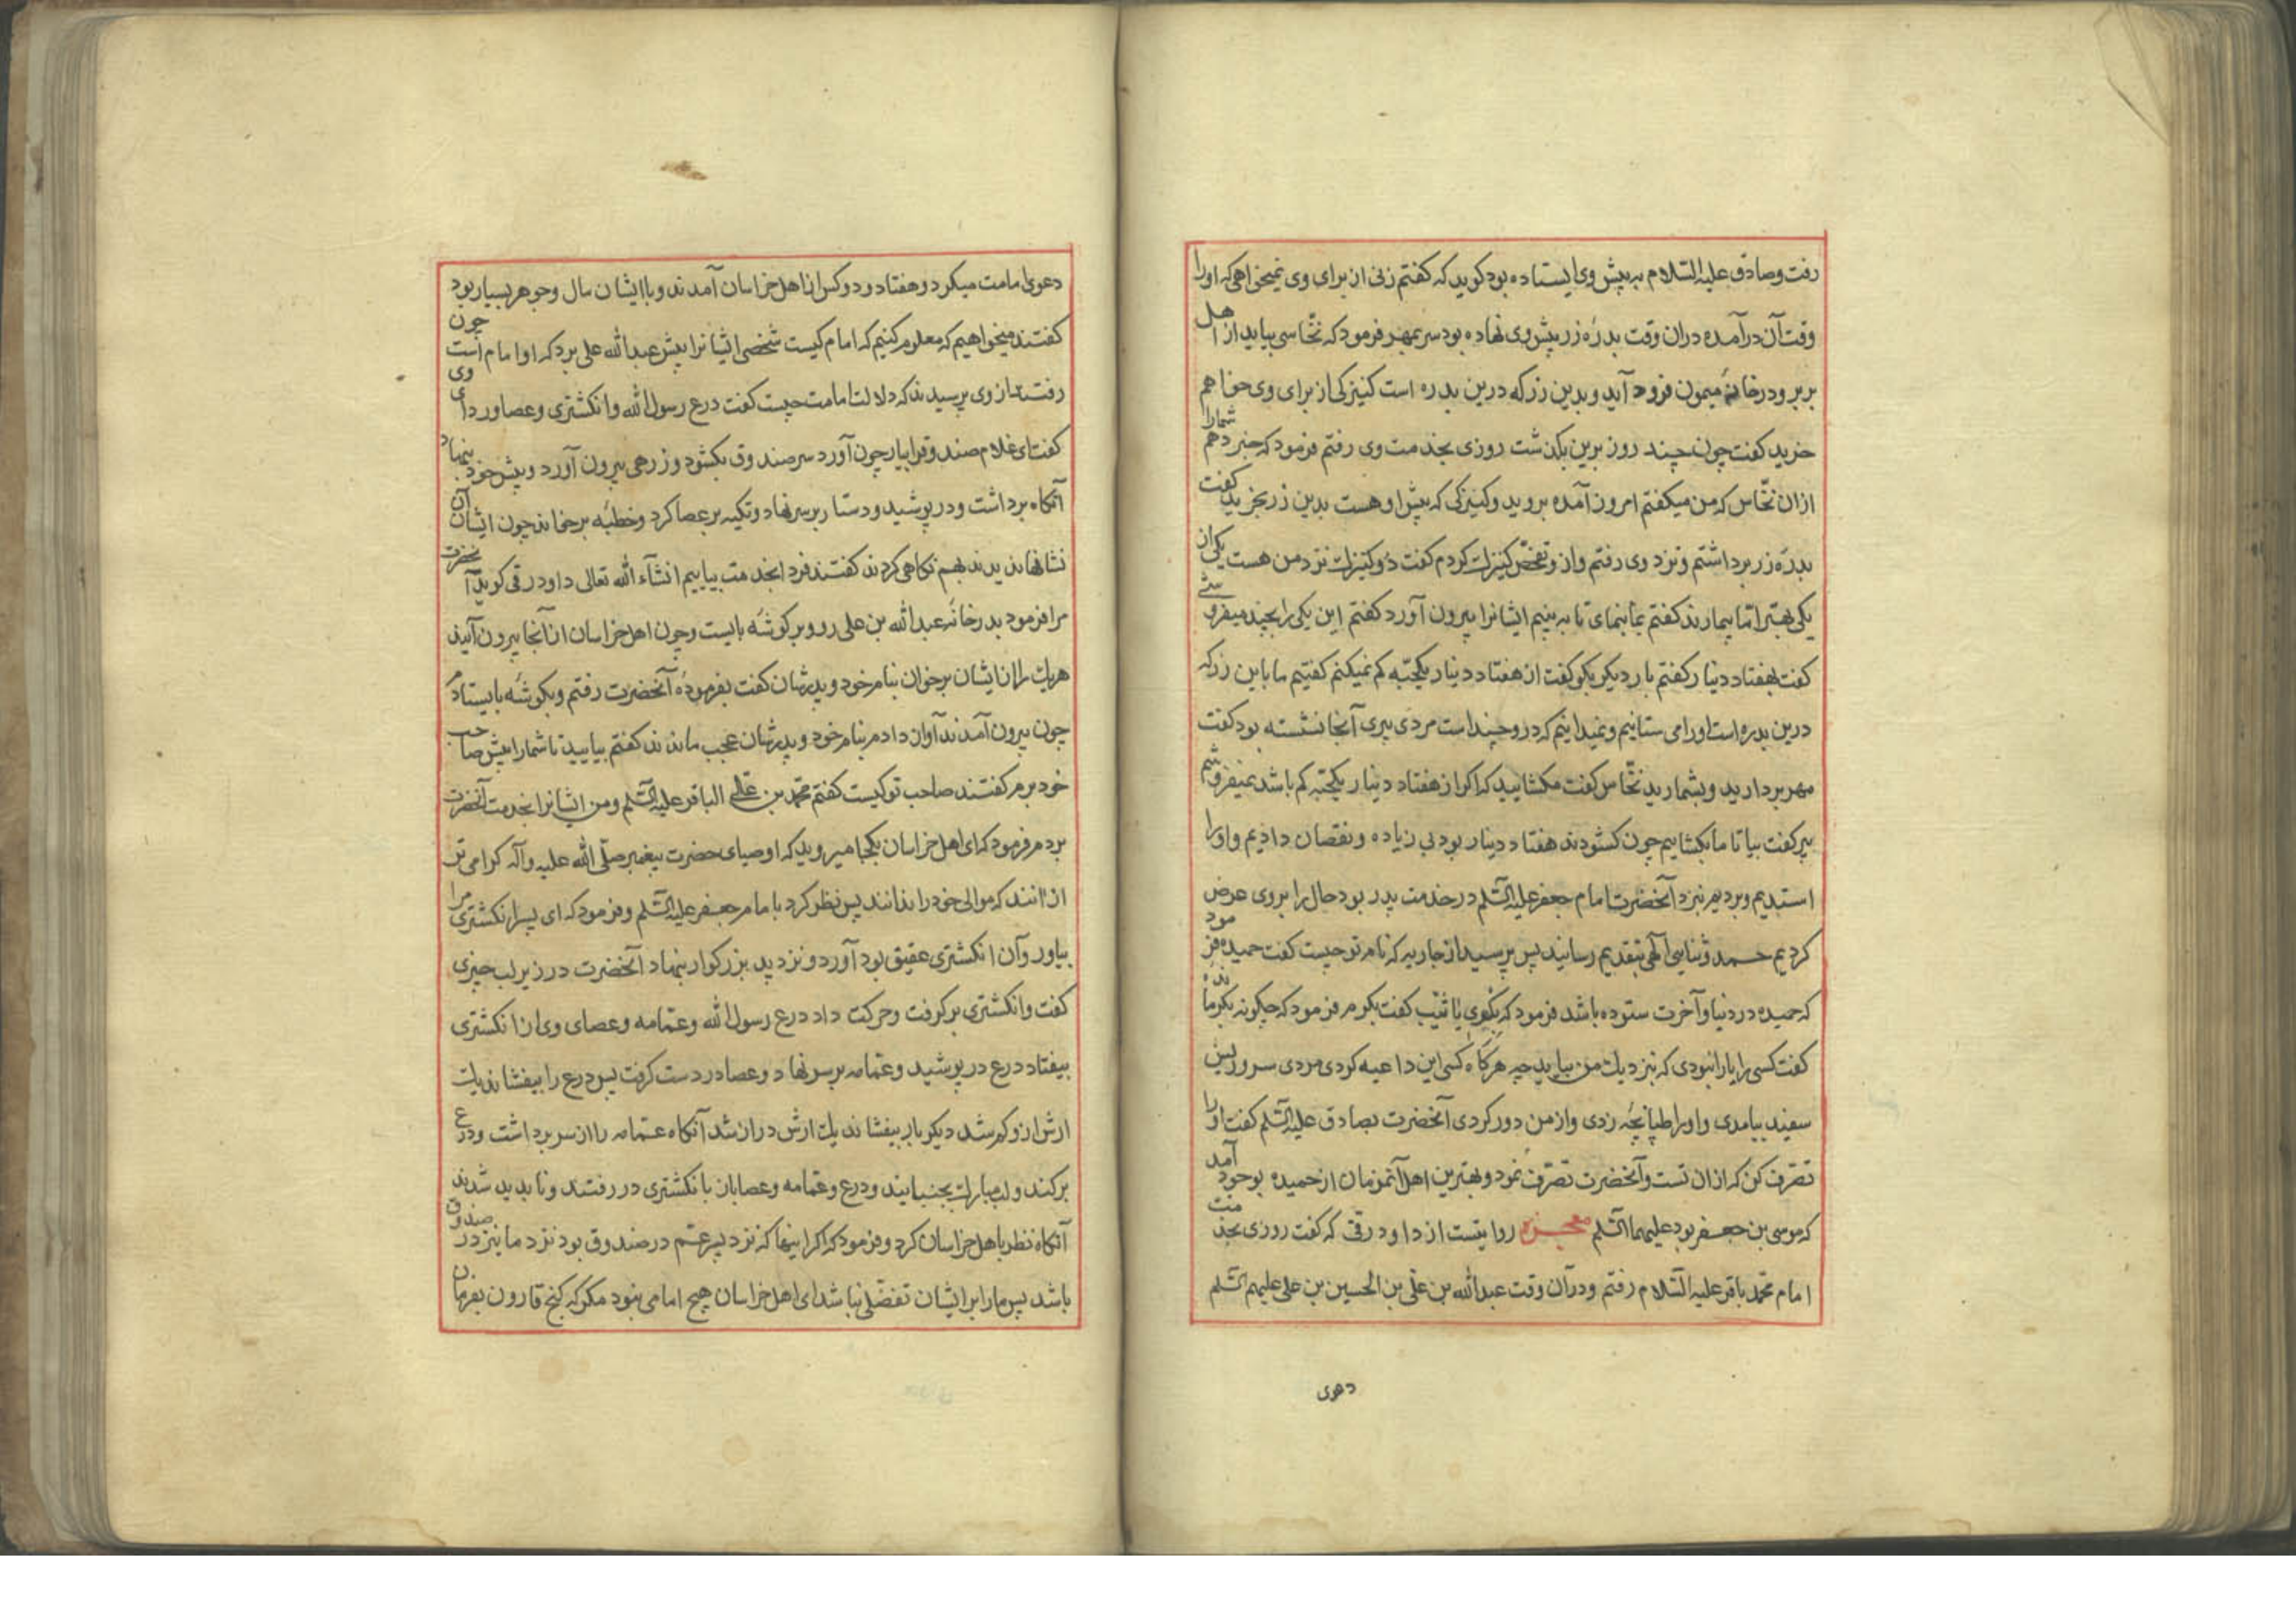 رفت و صادق علیه السّلام به پیش وی ایستاده بود کوید که کفتم زنی از برای وی نمیخواهی که او را
وقت آن درآمده دران وقت بدرهٔ زر پیش وی نهاده بود سر بمهر فرمود که نخّاسی بیاید از اهل
بربر و در خانهٔ میمون فرود آید و بدین زر که درین بدره است کنیزکی از برای وی خواهم
خرید کفت چون چند روز برین بکذشت روزی بخدمت وی رفتم فرمود که خبر دهم شما را
ازان نخّاس که من میکفتم امروز آمده بروید و کنیزکی که پیش او هست بدین زر بخرید کفت
بدرهٔ زر برداشتم و نزد وی رفتم و از و تفحّص کنیزک کردم کفت دو کنیزک نزد من هست یکی از
یکی بهتر امّا بیمارند کفتم بمانمای تا به بینیم ایشانرا بیرون آورد کفتم این یکی را بچند میفروشی
کفت بهفتاد دینار کفتم بار دیکر بکو کفت از هفتاد دینار یکحبّه کم نمیکنم کفتیم ما باین زر که
درین بدره است او را می ستانیم و نمیدانیم که درو چند است مردی پیری آنجا نشسته بود کفت
مهر بردارید و بشمارید نخّاس کفت مکشایید که اکر از هفتاد دینار یکحبّه کم باشد نمیفروشم
پیر کفت بیا تا ما بکشاییم چون کشودند هفتاد دینار بود بی زیاده و نقصان دادیم و او را
استدیم و بردیم نزد آنحضرت امام جعفر علیه السّلم در خدمت پدر بود حال را بر وی عرض
کردیم حمد و ثنایی آلهی بتقدیم رسانید پس پرسید از جاریه که نام تو چیست کفت حمیده فرمود
که حمیده در دنیا و آخرت ستوده باشد فرمود که بکوی یا ثیّب کفت بکرم فرمود که چکونه بکر مانده
کفت کسی را یارا نبودی که نزدیک من بیاید چه هرکاه کسی این داعیه کردی مردی سر و ریش
سفید بیامدی و او را طپانچهٔ زدی و از من دور کردی آنحضرت بصادق علیه السّلم کفت او را
تصرّف کن که از ان تست و آنحضرت تصرّف نمود و بهترین اهل آنزمان از حمیده بوجود آمد
که موسی بن جعفر بود علیهما السّلم معجزه روایتست از داود رقی که کفت روزی بخدمت
امام محمّد باقر علیه السّلام رفتم و دران وقت عبدالله بن علی بن الحسین بن علی علیهم السّلم
دعوی
دعوی امامت میکرد و هفتاد و دو کس از اهل خراسان آمدند و با ایشان مال و جوهر بسیار بود
کفتند میخواهیم که معلوم کنیم که امام کیست شخصی ایشانرا پیش عبدالله علی برد که او امام است چون
رفتند از وی پرسیدند که دلالت امامت چیست کفت درع رسول الله و انکشتری و عصا و ردای وی
کفت ای غلام صندوقرا بیار چون آورد سر صندوق بکشود و زرهی بیرون آورد و پیش خود بنهاد
آنکاه برداشت و در پوشید و دستار بر سر نهاد و تکیه بر عصا کرد و خطبهٔ بر خواند چون ایشان آن
نشانها بدیدند بهم نکاهی کردند کفتند فردا بخدمت بیاییم انشآء الله تعالی داود رقی کوید آنحضرت
مرا فرمود بدر خانهٔ عبدالله بن علی رو و بر کوشهٔ بایست و چون اهل خراسان از آنجا بیرون آیند
هریک را از ایشان برخوان بنام خود و پدرشان کفت بفرمودهٔ آنحضرت رفتم و بکوشهٔ بایستادم
چون بیرون آمدند آواز دادم بنام خود و پدرشان عجب ماندند کفتم بیایید تا شما را پیش صاحب
خود برم کفتند صاحب تو کیست کفتم محمّد بن علی الباقر علیه السّلم و من ایشانرا بخدمت آنحضرت
بردم فرمود که ای اهل خراسان بکجا میروید که اوصیای حضرت پیغمبر صلّی الله علیه و آله کرامی تر
از انند که موالی خود را ندانند پس نظر کرد با امام جعفر علیه السّلم و فرمود که ای پسر انکشتری مرا
بیاور و آن انکشتری عقیق بود آورد و نزد پدر بزرکوار بنهاد آنحضرت در زیر لب چیزی
کفت و انکشتری برکرفت و حرکت داد درع رسول الله و عمّامه و عصای وی از انکشتری
بیفتاد درع در پوشید و عمّامه بر سر نهاد و عصا در دست کرفت پس درع را بیفشاند یک
ارش ازو کم شد دیکر بار بیفشاند یک ارش دراز شد آنکاه عمّامه را از سر برداشت و درع
برکند و لب مبارک بجنبانید و درع و عمّامه و عصا باز با انکشتری در رفتند و ناپدید شدند
آنکاه نظر با اهل خراسان کرد و فرمود که اکر اینها که نزد پسر عمّم در صندوق بود نزد ما نیز در صندوق
باشد پس ما را بر ایشان تفضّلی نباشد ای اهل خراسان هیچ امامی نبود مکر که کنج قارون بفرمان